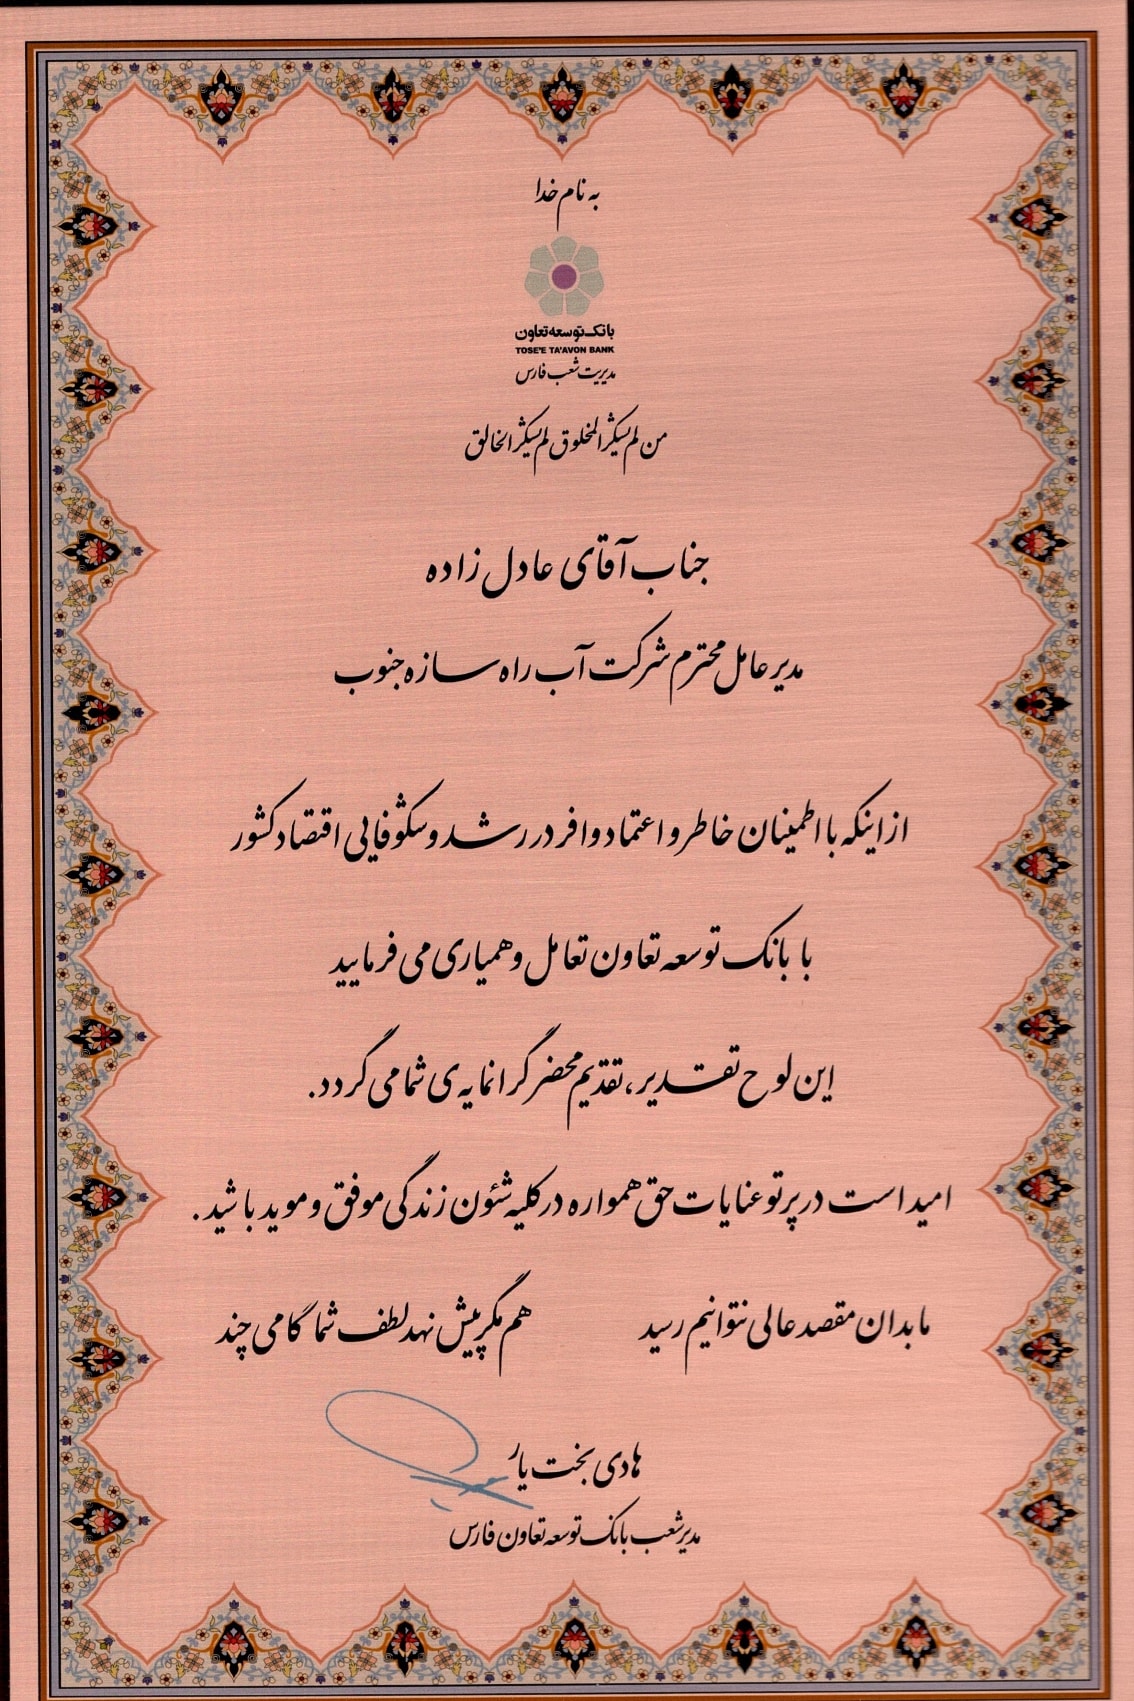 به نام خدا
بانک توسعه تعاون
TOSE'E TA'AVON BANK
مدیریت شعب فارس
من لم یشکر المخلوق لم یشکر الخالق
جناب آقای عادل زاده
مدیر عامل محترم شرکت آب راه سازه جنوب
از اینکه با اطمینان خاطر و اعتماد وافر در رشد و شکوفایی اقتصاد کشور
با بانک توسعه تعاون تعامل و همیاری می فرمایید
این لوح تقدیر، تقدیم محضر گرانمایه ی شما می گردد.
امید است در پرتو عنایات حق همواره در کلیه شئون زندگی موفق و موید باشید.
ما بدان مقصد عالی نتوانیم رسید هم مگر پیش نهد لطف شما گامی چند
هادی بخت یار
مدیر شعب بانک توسعه تعاون فارس